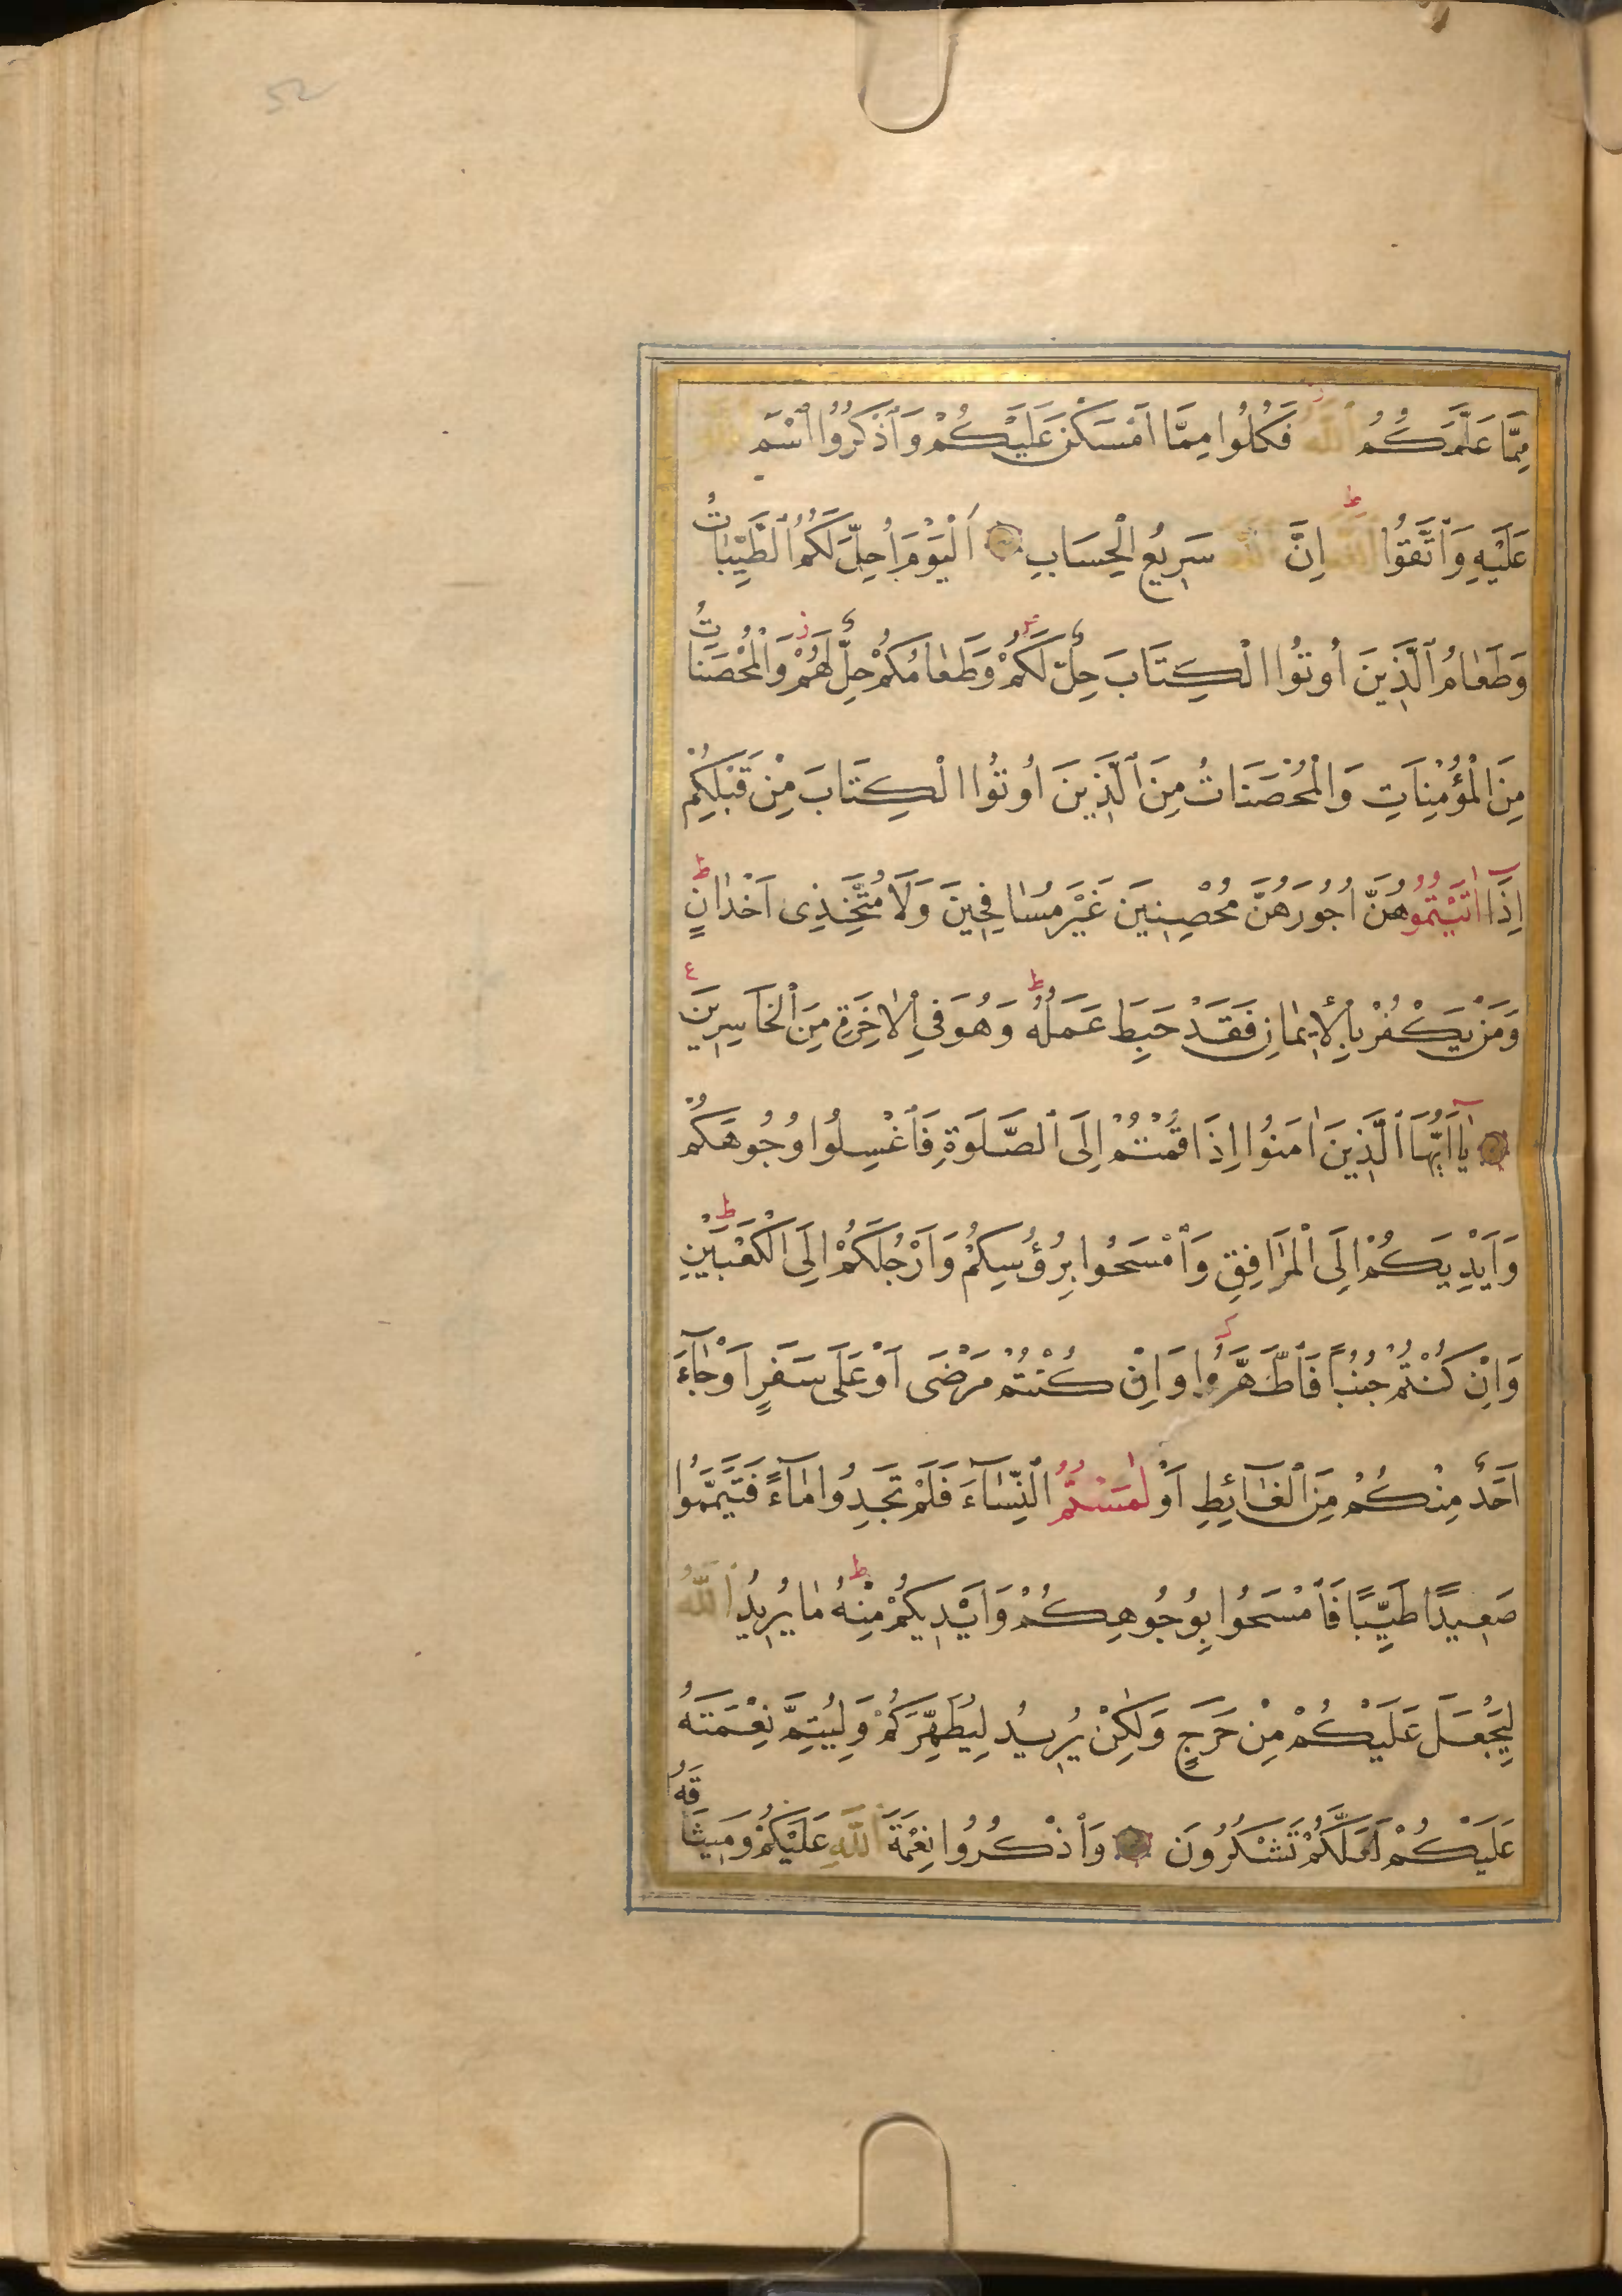 52
مِمَّا عَلَّمَكُمُ ٱللّٰهُ فَكُلُوا مِمَّا اَمْسَكْنَ عَلَيْكُمْ وَٱذْكُرُوا ٱسْمَ ٱللّٰهِ
عَلَيْهِ وَٱتَّقُوا ٱللّٰهَ اِنَّ ٱللّٰهَ سَرِيعُ الْحِسَابِ اَلْيَوْمَ اُحِلَّ لَكُمُ ٱلطَّيِّبَاتُ
وَطَعَامُ ٱلَّذِينَ اُوتُوا الْكِتَابَ حِلٌّ لَكُمْ وَطَعَامُكُمْ حِلٌّ لَهُمْ وَالْمُحْصَنَاتُ
مِنَ الْمُؤْمِنَاتِ وَالْمُحْصَنَاتُ مِنَ ٱلَّذِينَ اُوتُوا الْكِتَابَ مِنْ قَبْلِكُمْ
اِذَا اٰتَيْتُمُوهُنَّ اُجُورَهُنَّ مُحْصِنِينَ غَيْرَ مُسَافِحِينَ وَلَا مُتَّخِذِى اَخْدَانٍ ط
وَمَنْ يَكْفُرْ بِالْاِيمَانِ فَقَدْ حَبِطَ عَمَلُهُ ط وَهُوَ فِي الْاٰخِرَةِ مِنَ ٱلْخَاسِرِينَ ع
يَٓا اَيُّهَا ٱلَّذِينَ اٰمَنُوا اِذَا قُمْتُمْ اِلَى ٱلصَّلَوةِ فَٱغْسِلُوا وُجُوهَكُمْ
وَاَيْدِيَكُمْ اِلَى الْمَرَافِقِ وَٱمْسَحُوا بِرُؤُسِكُمْ وَاَرْجُلَكُمْ اِلَى الْكَعْبَيْنِ ط
وَاِنْ كُنْتُمْ جُنُبًا فَٱطَّهَّرُوا وَاِنْ كُنْتُمْ مَرْضَى اَوْ عَلَى سَفَرٍ اَوْ جَٓاءَ
اَحَدٌ مِنْكُمْ مِنَ ٱلْغَٓائِطِ اَوْ لٰمَسْتُمُ ٱلنِّسَٓاءَ فَلَمْ تَجِدُوا مَٓاءً فَتَيَمَّمُوا
صَعِيدًا طَيِّبًا فَٱمْسَحُوا بِوُجُوهِكُمْ وَاَيْدِيكُمْ مِنْهُ ط مَا يُرِيدُ ٱللّٰهُ
لِيَجْعَلَ عَلَيْكُمْ مِنْ حَرَجٍ وَلٰكِنْ يُرِيدُ لِيُطَهِّرَكُمْ وَلِيُتِمَّ نِعْمَتَهُ
عَلَيْكُمْ لَعَلَّكُمْ تَشْكُرُونَ وَٱذْكُرُوا نِعْمَةَ ٱللّٰهِ عَلَيْكُمْ وَمِيثَاقَهُ